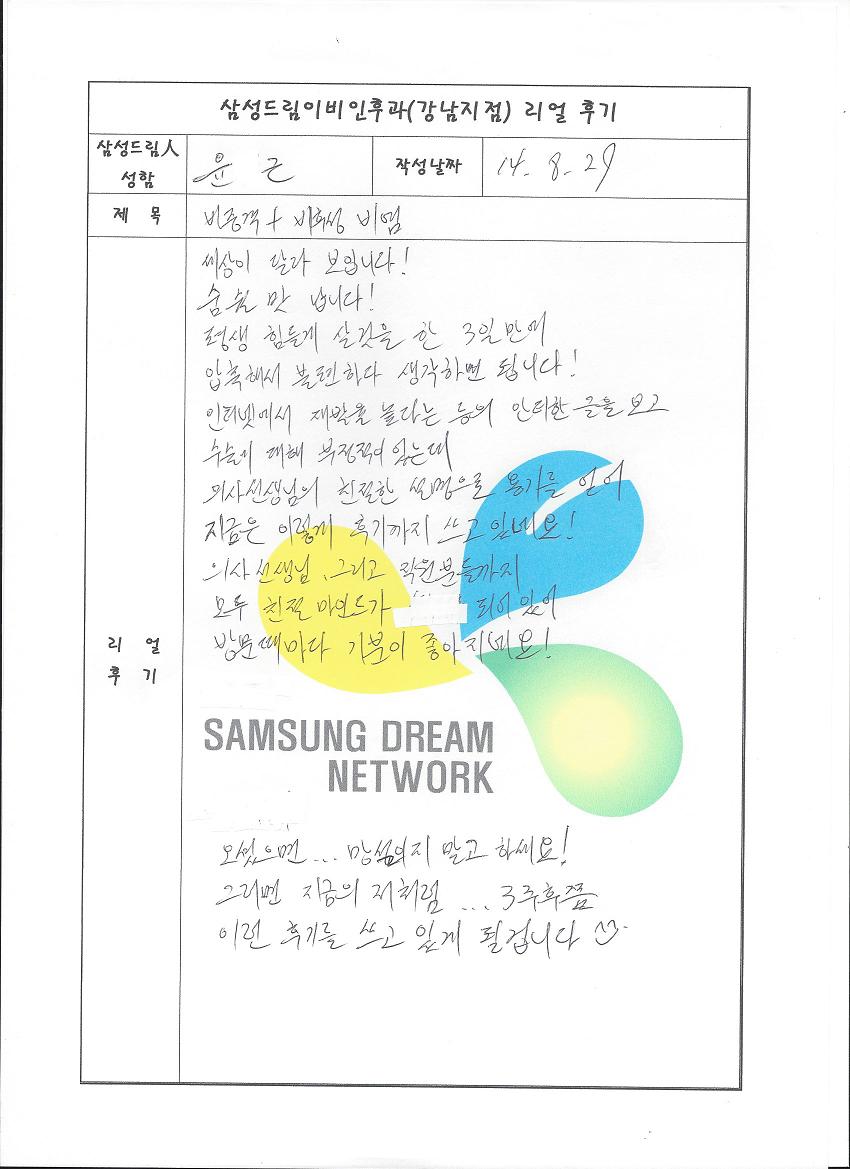 삼성드림이비인후과(강남지점) 리얼 후기
삼성드림人 성함
윤 근
작성날짜
14. 8. 29
제 목
비중격 + 비후성 비염
리 얼 후 기
세상이 달라 보입니다!
숨쉴 맛 납니다!
평생 힘들게 살것을 한 3일만에
압축해서 불편하다 생각하면 됩니다!
인터넷에서 재발율 높다는 등의 안티한 글을 보고
수술에 대해 부정적이었는데
의사선생님의 친절한 설명으로 용기를 얻어
지금은 이렇게 후기까지 쓰고 있네요!
의사선생님, 그리고 직원분들까지
모두 친절 마인드가 되어있어
방문때마다 기분이 좋아지네요!
SAMSUNG DREAM
NETWORK
오셨으면... 망설이지 말고 하세요!
그러면 지금의 저처럼 ... 3주후쯤
이런 후기를 쓰고 있게 될겁니다